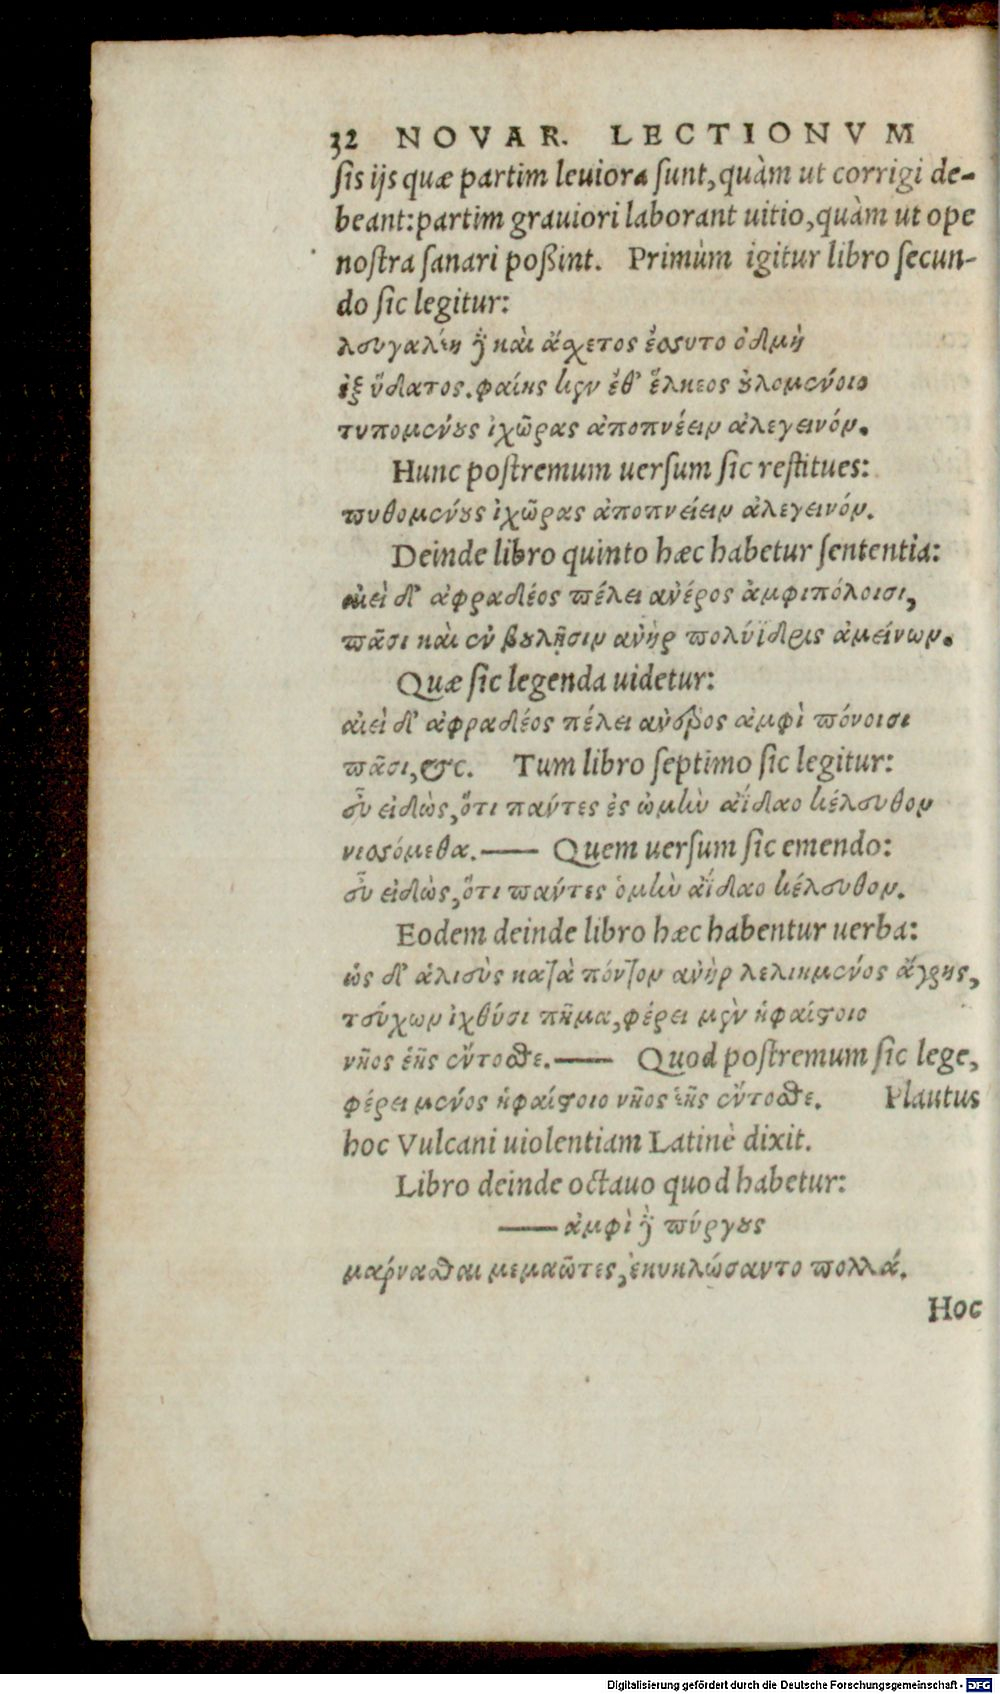 32 NOVAR. LECTIONVM
sis ijs quæ partim leuiora sunt, quàm ut corrigi de-
beant: partim grauiori laborant uitio, quàm ut ope
nostra sanari poßint. Primùm igitur libro secun-
do sic legitur:
λευγαλέη δὲ καὶ ἄχετος ἔσσυτο ὀδμὴ
ἐξ ὕδατος. φαίης κεν ἔθ᾽ ἕλκεος οὐλομένοιο
τυπομένους ἰχῶρας ἀποπνέειν ἀλεγεινόν.
Hunc postremum uersum sic restitues:
πυθομένους ἰχῶρας ἀποπνείειν ἀλεγεινόν.
Deinde libro quinto hæc habetur sententia:
αἰεὶ δ᾽ ἀφραδέος πέλει ἀνέρος ἀμφιπόλοισι,
πᾶσι καὶ ἐν βουλῇσιν ἀνὴρ πολύϊδρις ἀμείνων.
Quæ sic legenda uidetur:
αἰεὶ δ᾽ ἀφραδέος πέλει ἀνδρὸς ἀμφὶ πόνοισι
πᾶσι, &c. Tum libro septimo sic legitur:
εὖ εἰδὼς, ὅτι πάντες ἐς ὠμὴν ἀΐδαο κέλευθον
νισσόμεθα. — Quem uersum sic emendo:
εὖ εἰδὼς, ὅτι πάντες ὁμὴν ἀΐδαο κέλευθον.
Eodem deinde libro hæc habentur uerba:
ὡς δ᾽ ἁλιεὺς κατὰ πόντον ἀνὴρ λελιημένος ἄγρης,
τεύχων ἰχθύσι πῆμα, φέρει μὲν ἡφαίστοιο
νηὸς ἑῆς ἔντοσθε. — Quod postremum sic lege,
φέρει μένος ἡφαίστοιο νηὸς ἑῆς ἔντοσθε. Plautus
hoc Vulcani uiolentiam Latinè dixit.
Libro deinde octauo quod habetur:
— ἀμφὶ δὲ πύργους
μάρνασθαι μεμαῶτες, ἐκυκλώσαντο πολλά.
Hoc
Digitalisierung gefördert durch die Deutsche Forschungsgemeinschaft - DFG